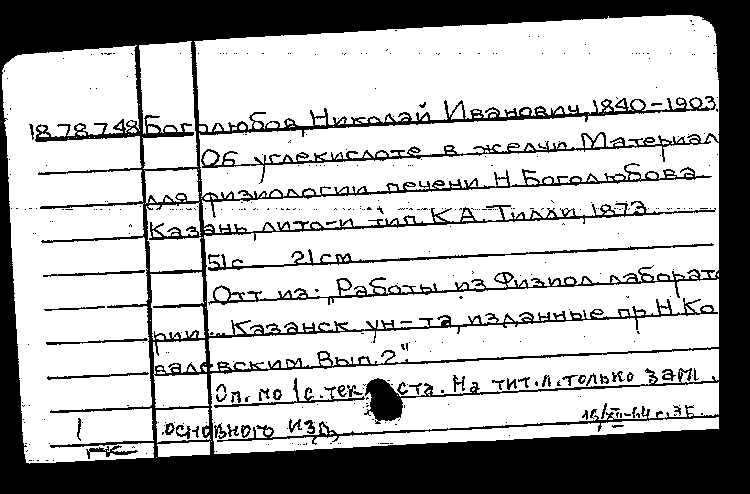 18.78.748 Боголюбов, Николай Иванович, 1840-1903
Об углекислоте в желчи. Материал
для физиологии печени. Н. Боголюбова
Казань, лито-и тип. К.А. Тилли, 1873.
51 с 21 см
Отт из: "Работы из Физиол лаборато
рии... Казанск ун-та, изданные пр. Н. Ко
валевским. Вып. 2".
Оп. по 1с. текста. На тит. л. только загл.
1 основного изд.
ГК